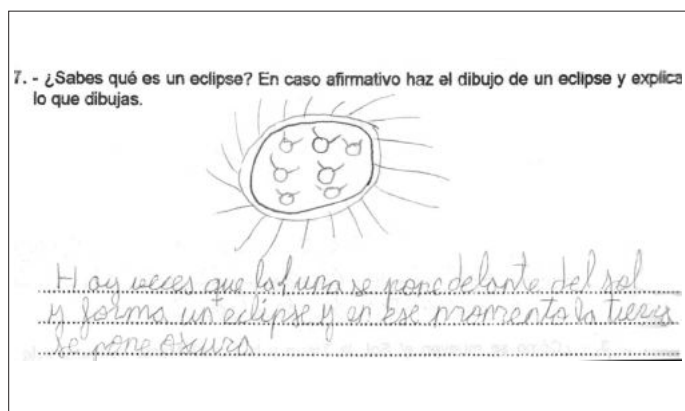 7. - ¿Sabes qué es un eclipse? En caso afirmativo haz el dibujo de un eclipse y explica
lo que dibujas.
Hay veces que la luna se pone delante del sol
y forma un eclipse y en ese momento la tierra
se pone oscura